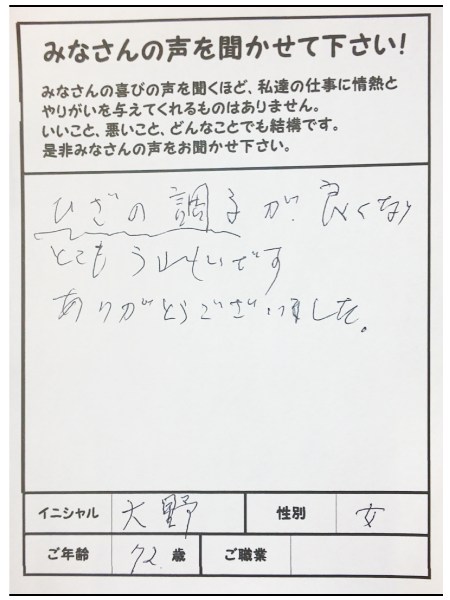 みなさんの声を聞かせて下さい!
みなさんの喜びの声を聞くほど、私達の仕事に情熱と
やりがいを与えてくれるものはありません。
いいこと、悪いこと、どんなことでも結構です。
是非みなさんの声をお聞かせ下さい。
ひざの調子が良くなり
とてもうれしいです
ありがとうございました。
イニシャル 大野 性別 女
ご年齢 72 歳 ご職業